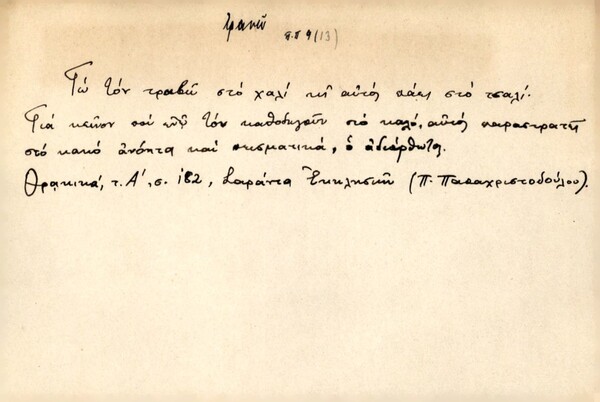 τραβῶ
π.δ 9 (13)
Γώ τόν τραβῶ στό χαλί κι αὐτός πάει στό τσαλί.
Γιά κεῖνον πού τόν καθοδηγοῦν στό καλό, αὐτός παραστρατεῖ
στό κακό ἀνόητα καί πεισματικά, ὁ ἀδιόρθωτα.
Θρακικά, τ. Α', σ. 182, Σαράντα Ἐκκλησιῶν (Π. Παπαχριστοδούλου).